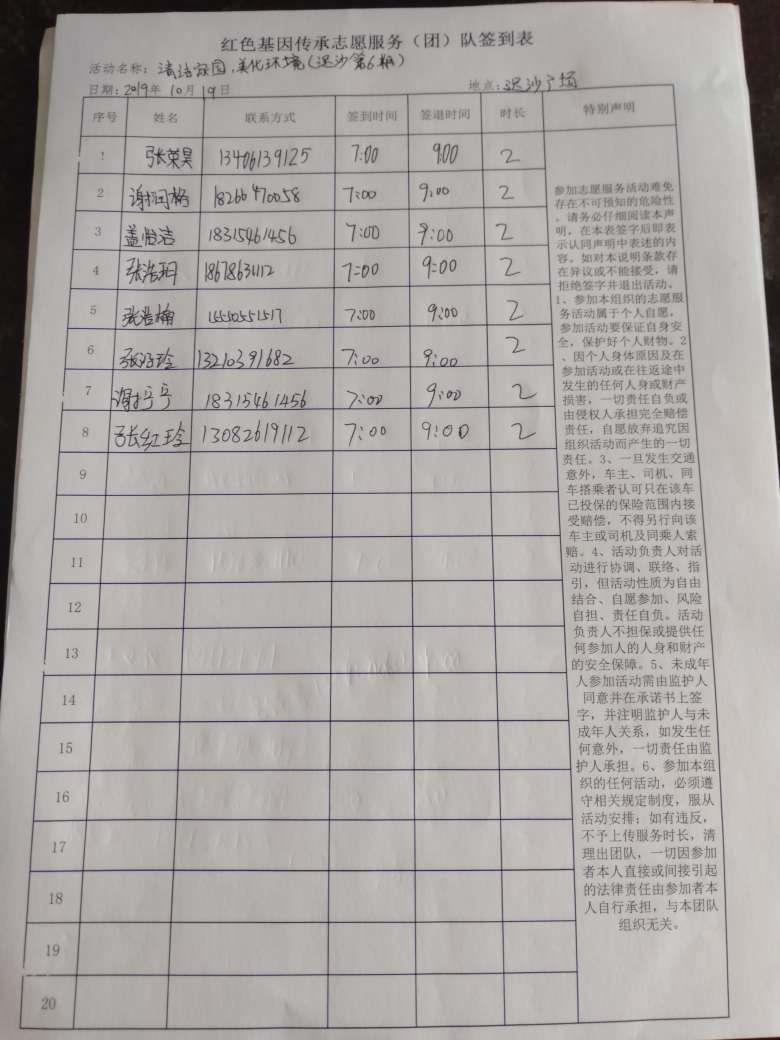 红色基因传承志愿服务（团）队签到表
活动名称：清洁家园，美化环境（退沙第6期）
日期：2019年10月19日 地点：退沙广场
序号 姓名 联系方式 签到时间 签退时间 时长 特别声明
1 张荣昊 13406139125 7:00 9:00 2
2 18266470058 7:00 9:00 2
3 盖怡洁 18315461456 7:00 9:00 2
4 张浩玥 18678631112 7:00 9:00 2
5 张浩楠 15550551517 7:00 9:00 2
6 13210391682 7:00 9:00 2
7 18315461456 7:00 9:00 2
8 张红玲 13082619112 7:00 9:00 2
9
10
11
12
13
14
15
16
17
18
19
20
参加志愿服务活动难免
存在不可预知的危险性
。请务必仔细阅读本声
明，在本表签字后即表
示认同声明中表述的内
容。如对本说明条款存
在异议或不能接受，请
拒绝签字并退出活动。
1、参加本组织的志愿服
务活动属于个人自愿，
参加活动要保证自身安
全，保护好个人财物。2
、因个人身体原因及在
参加活动或在往返途中
发生的任何人身或财产
损害，一切责任自负或
由侵权人承担完全赔偿
责任，自愿放弃追究因
组织活动而产生的一切
责任。3、一旦发生交通
意外，车主、司机、同
车搭乘者认可只在该车
已投保的保险范围内接
受赔偿，不得另行向该
车主或司机及同乘人索
赔。4、活动负责人对活
动进行协调、联络、指
引，但活动性质为自由
结合、自愿参加、风险
自担、责任自负。活动
负责人不担保或提供任
何参加人的人身和财产
的安全保障。5、未成年
人参加活动需由监护人
同意并在承诺书上签
字，并注明监护人与未
成年人关系，如发生任
何意外，一切责任由监
护人承担。6、参加本组
织的任何活动，必须遵
守相关规定制度，服从
活动安排；如有违反，
不予上传服务时长，清
理出团队，一切因参加
者本人直接或间接引起
的法律责任由参加者本
人自行承担，与本团队
组织无关。